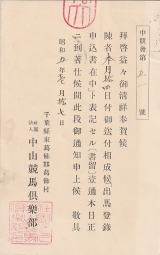 中競會第 號
拜啓益々御清祥奉賀候
陳者本月 日付御送付相成候出馬登錄
申込書在中ト表記セル（書留）壹通本日正
ニ到著仕候間此段御通知申上候 敬具
昭和 年 月 日
千葉縣東葛飾郡葛飾村
社團法人 中山競馬俱樂部